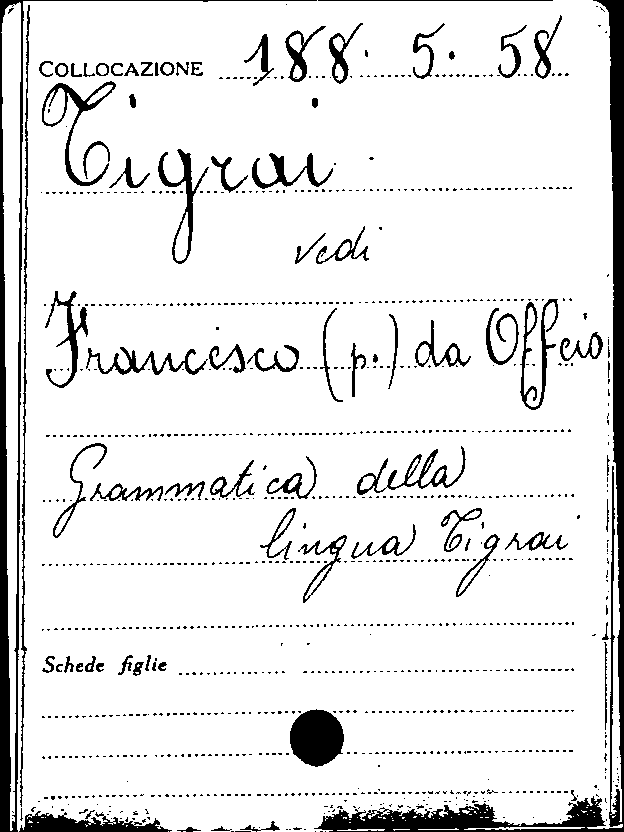 COLLOCAZIONE 188. 5. 58
Tigrai
vedi
Francesco (p.) da Offeio
Grammatica della
lingua Tigrai
Schede figlie